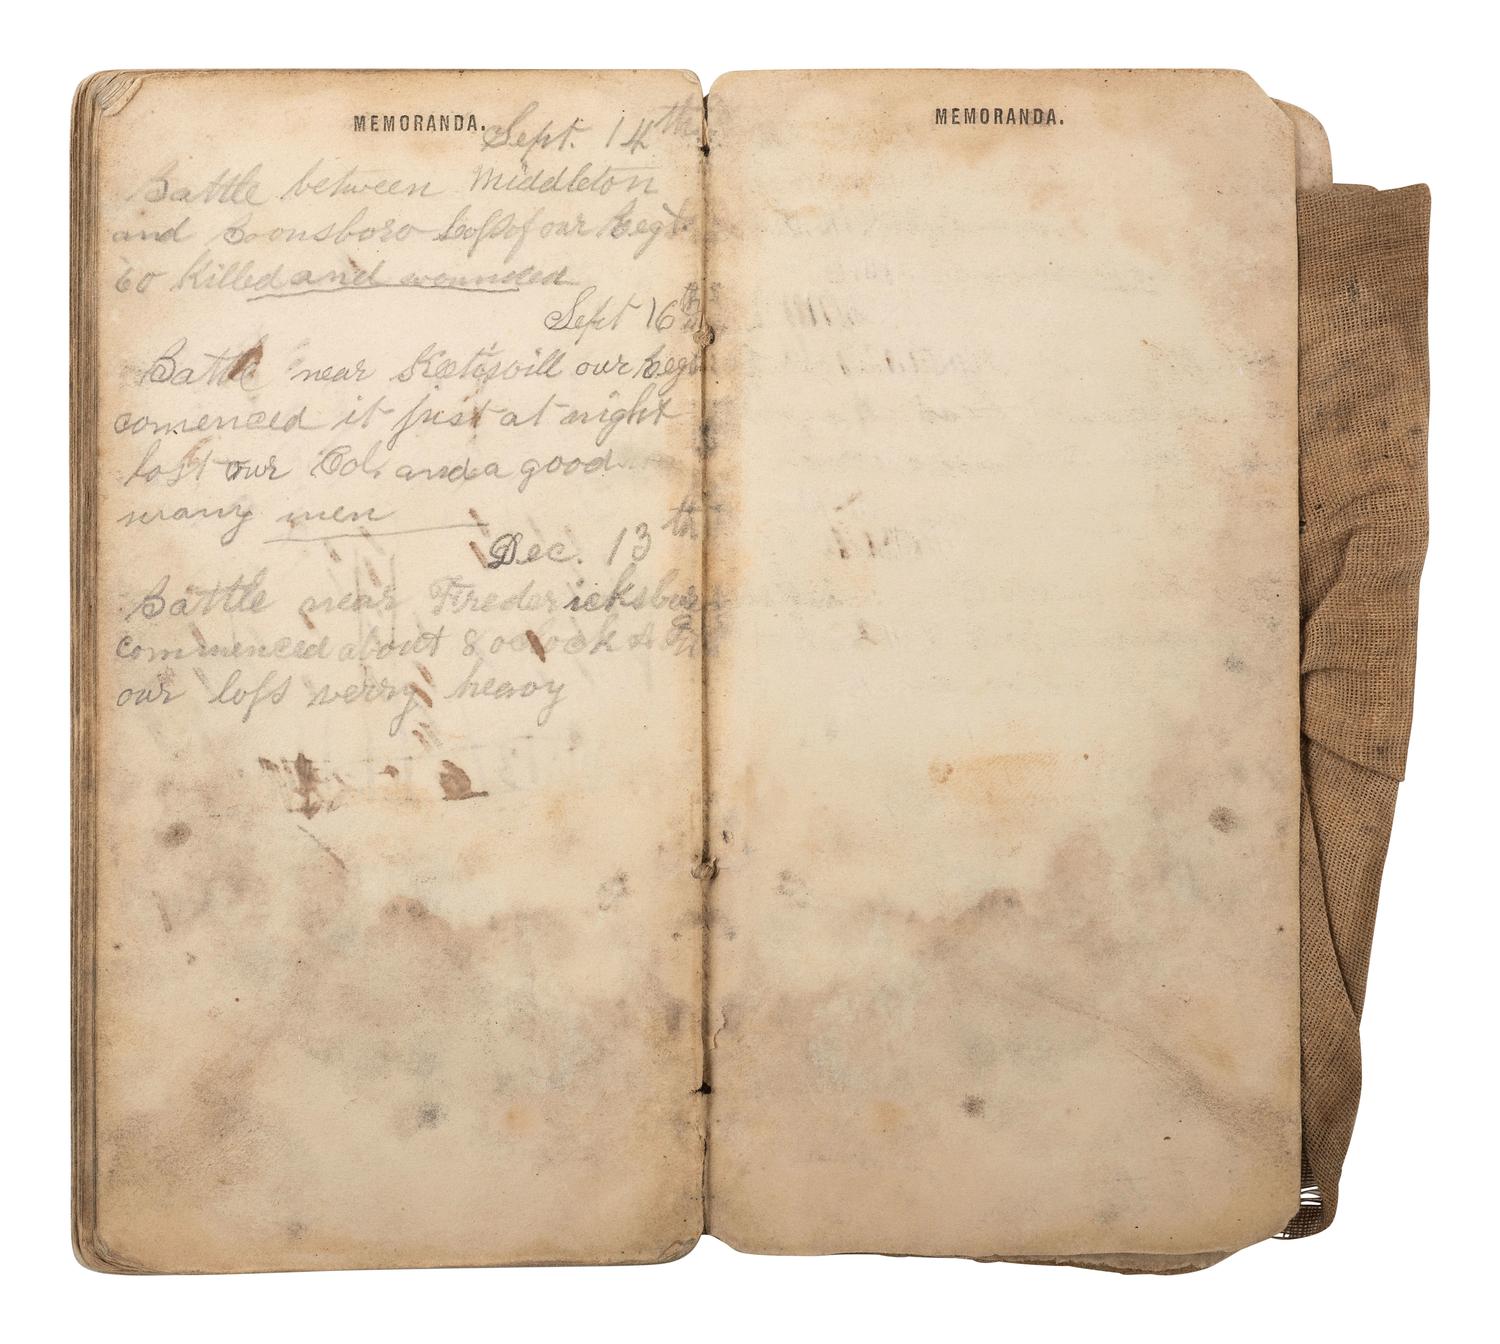 MEMORANDA.
Sept. 14th
Battle between Middleton
and Boonsboro Loss of our Regt
60 Killed and wounded
Sept 16th
Battle near our Regt
comenced it just at night
lost our Col. and a good
many men
Dec. 13th
Battle near Fredericksburg
commenced about 8 oclock
our loss verry heavy
MEMORANDA.